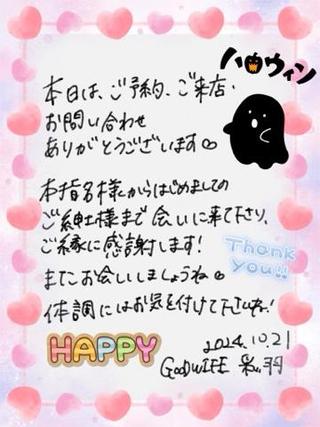 ハロウィン
本日は、ご予約、ご来店、
お問い合わせ
ありがとうございます♡
本指名様からはじめましての
ご紳士様まで会いに来て下さり、
ご縁に感謝します!
Thank
you!!
またお会いしましょうね♡
体調にはお気を付けて下さいね!
HAPPY
2024.10.21
GOODWIFE